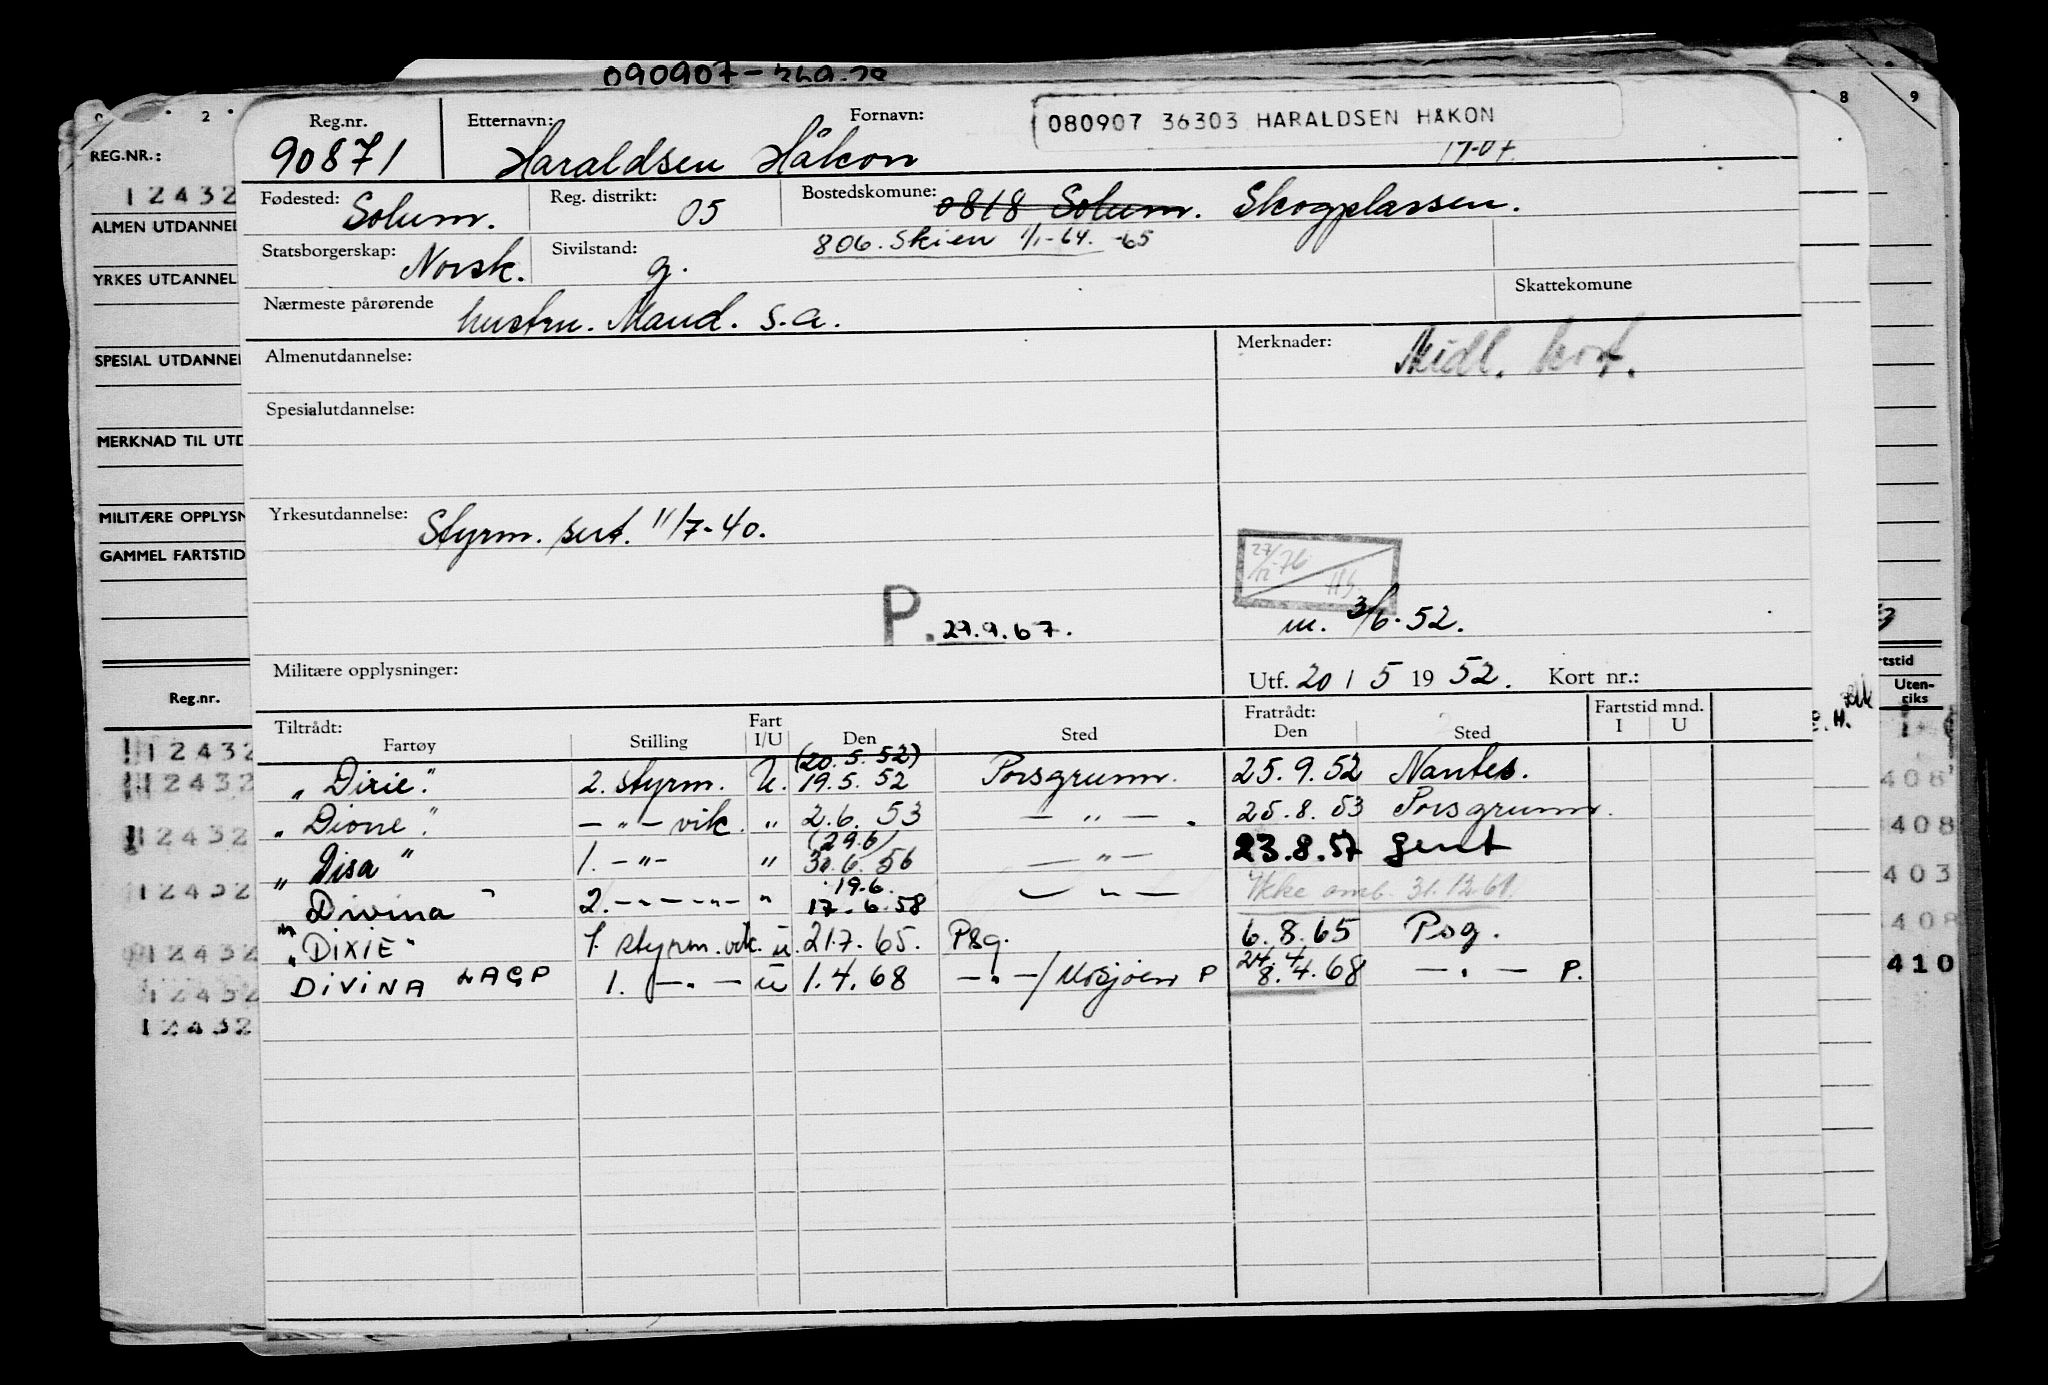 090907-
2 8 9
Reg.nr. Etternavn: Fornavn: 080907 36303 HARALDSEN HÅKON
90871 Haraldsen Håkon
Fødested: Solum. Reg. distrikt: 05 Bostedskomune: 0818 Solum. Skogplassen.
806. Skien 1/1-64. -65
Statsborgerskap: Norsk. Sivilstand: g.
Nærmeste pårørende hustru. Maud. s.a. Skattekomune
Almenutdannelse: Merknader: Midl. kort.
Spesialutdannelse:
Yrkesutdannelse: Styrm. sert. 11/7-40.
27/12-76
P. 27.9.67. m. 3/6-52.
Militære opplysninger: Utf. 20 / 5 19 52. Kort nr.:
Tiltrådt: Fart Fratrådt: Fartstid mnd.
Fartøy Stilling I/U Den Sted Den Sted I U
(20.5.52)
"Dixie". 2. styrm. U. 19.5.52 Porsgrunn. 25.9.52 Nantes.
"Dione". -"- vik. " 2.6.53 -"-. 25.8.53 Porsgrunn.
(29.6)
"Disa" 1. -"- " 30.6.56 -"- 23.8.57 Gent
19.6.
"Divina" 2. -"- -"- " 17.6.58 -"- Ikke omb. 31.12.61.
"DIXIE" 1. styrm. vik. u. 21.7.65. Psg. 6.8.65 Psg.
24.4
DIVINA LAGP 1. -"- u 1.4.68 -"-/Mosjøen P 8.4.68 -"- P.
REG.NR.:
12432
ALMEN UTDANNEL
YRKES UTDANNEL
SPESIAL UTDANNEL
MERKNAD TIL UTD
MILITÆRE OPPLYSN
GAMMEL FARTSTID
Reg.nr.
12432
12432
12432
12432
12432
12432
12432
rtstid
Uten-
riks
408
408
403
408
410